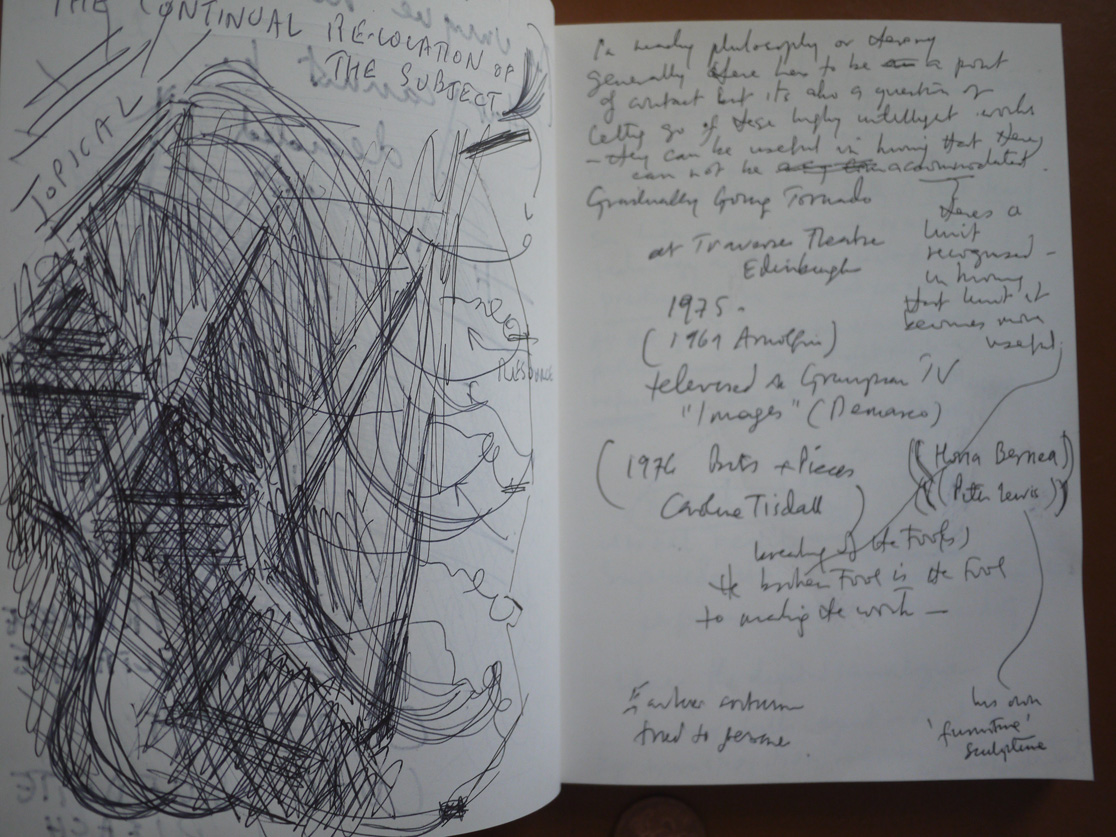 THE CONTINUAL RE-LOCATION OF
THE SUBJECT
TOPICAL
In reading philosophy or theory
generally there has to be a point
of contact but it's also a question of
letting go of these highly intelligent works
- they can be useful in knowing that they
can not be accommodated
Gradually Going Tornado
at Traverse Theatre
Edinburgh
1975.
(1969 Arnolfini)
televised on Grampian TV
"Images" (Demarco)
(1976 Bits + Pieces
Caroline Tisdall)
there's a
limit
recognised -
in knowing
that limit it
becomes more
useful
((Horia Bernea))
((Peter Lewis))
breaking of the Tools)
the broken Tool is the Tool
to making the work -
his own
'furniture'
sculpture
tried to